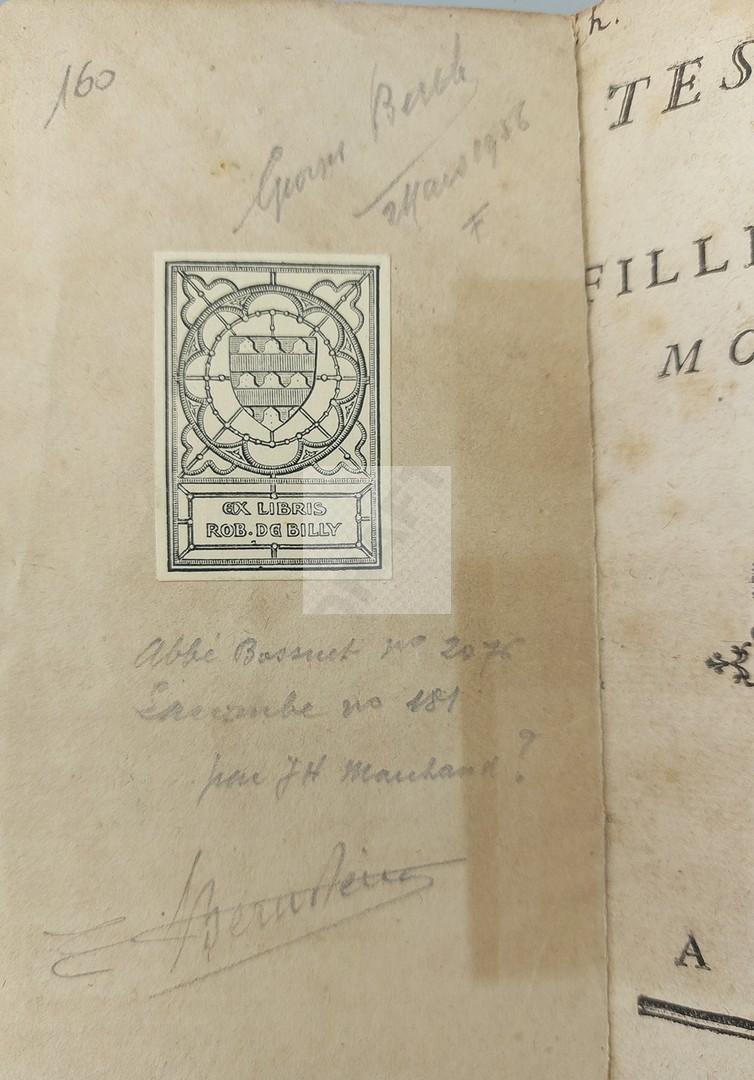 160
Mars 1956
F
EX LIBRIS
ROB. DE BILLY
Abbé Bossuet no 2076
Lacombe no 181
par JH Marchand ?
h.
TES
FILLE
MO
A